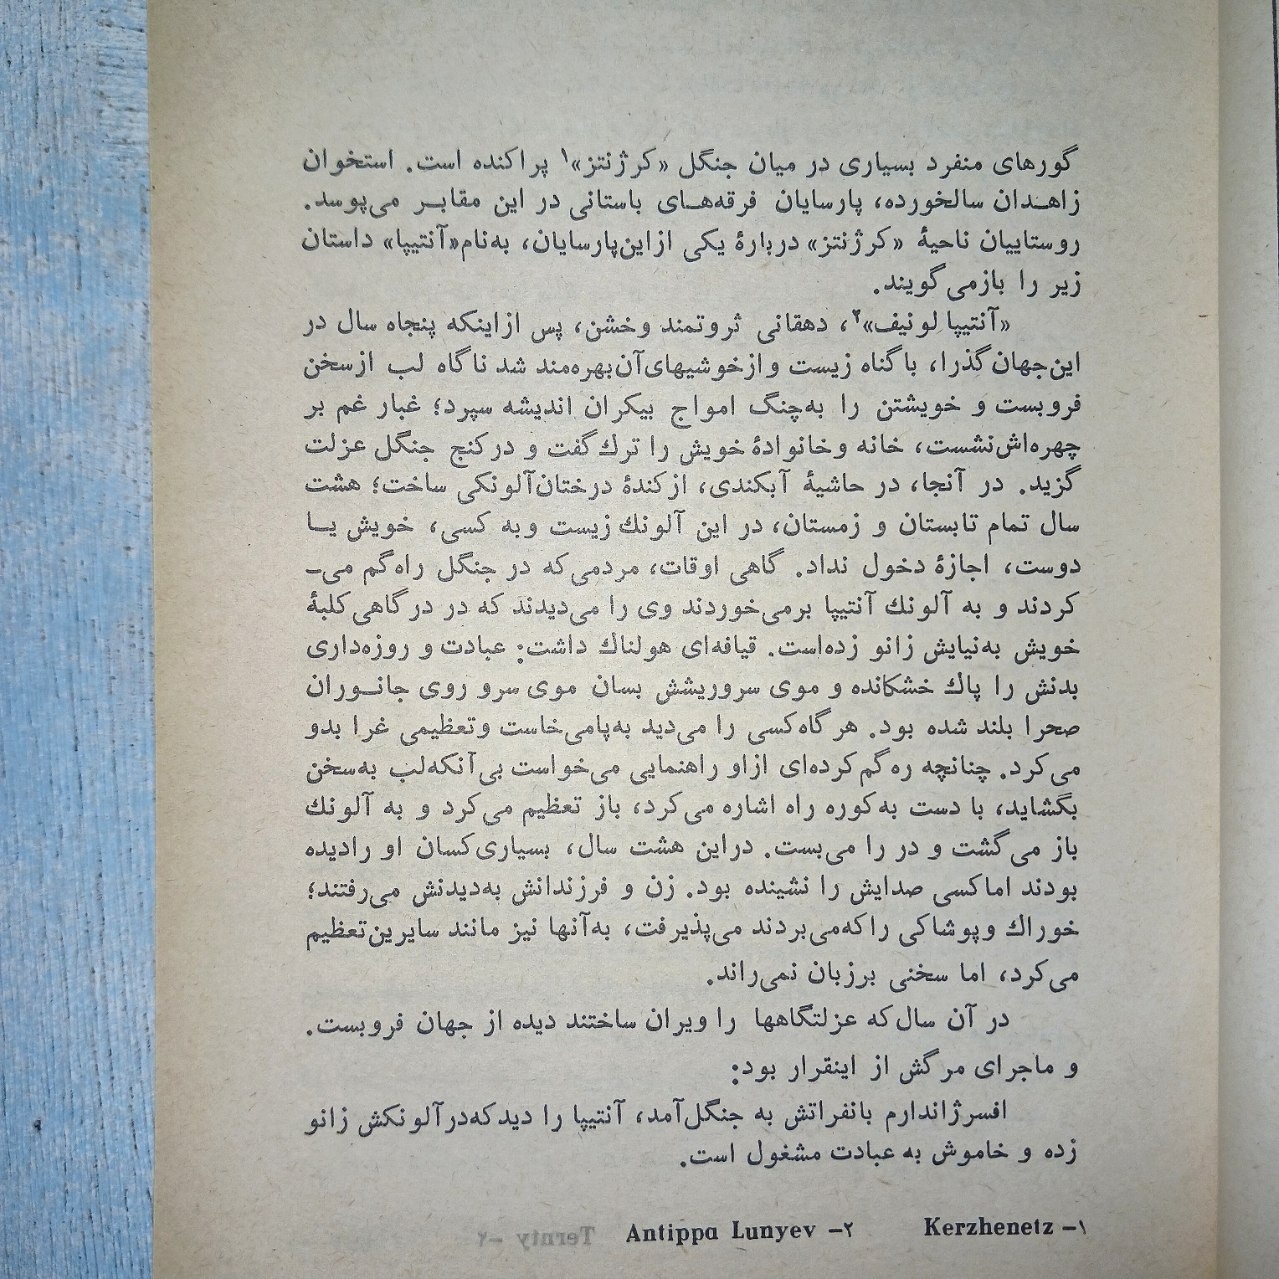 گورهای منفرد بسیاری در میان جنگل «کرژنتز»۱ پراکنده است. استخوان
زاهدان سالخورده، پارسایان فرقه‌های باستانی در این مقابر می‌پوسد.
روستاییان ناحیهٔ «کرژنتز» دربارهٔ یکی ازاین‌پارسایان، به‌نام«آنتیپا» داستان
زیر را بازمی‌گویند.
«آنتیپا لونیف»۲، دهقانی ثروتمند وخشن، پس ازاینکه پنجاه سال در
این‌جهان‌گذرا، باگناه زیست وازخوشیهای‌آن‌بهره‌مند شد ناگاه لب ازسخن
فروبست و خویشتن را به‌چنگ امواج بیکران اندیشه سپرد؛ غبار غم بر
چهره‌اش‌نشست، خانه وخانوادهٔ خویش را ترك‌گفت و درکنج جنگل عزلت
گزید. در آنجا، در حاشیهٔ آبکندی، ازکندهٔ درختان‌آلونکی ساخت؛ هشت
سال تمام تابستان و زمستان، در این آلونك زیست وبه کسی، خویش یا
دوست، اجازهٔ دخول نداد. گاهی اوقات، مردمی‌که در جنگل راه‌گم می‌ـ
کردند و به آلونك آنتیپا برمی‌خوردند وی را می‌دیدند که در درگاهی‌کلبهٔ
خویش به‌نیایش زانو زده‌است. قیافه‌ای هولناك داشت: عبادت و روزه‌داری
بدنش را پاك خشکانده و موی سروریشش بسان موی سرو روی جانوران
صحرا بلند شده بود. هرگاه‌کسی را می‌دید به‌پامی‌خاست وتعظیمی غرا بدو
می‌کرد. چنانچه ره‌گم‌کرده‌ای ازاو راهنمایی می‌خواست بی‌آنکه‌لب به‌سخن
بگشاید، با دست به‌کوره راه اشاره می‌کرد، باز تعظیم می‌کرد و به آلونك
باز می‌گشت و در را می‌بست. دراین هشت سال، بسیاری‌کسان او رادیده
بودند اماکسی صدایش را نشینده بود. زن و فرزندانش به‌دیدنش می‌رفتند؛
خوراك وپوشاکی راکه‌می‌بردند می‌پذیرفت، به‌آنها نیز مانند سایرین‌تعظیم
می‌کرد، اما سخنی برزبان نمی‌راند.
در آن سال‌که عزلتگاهها را ویران ساختند دیده از جهان فروبست.
و ماجرای مرگش از اینقرار بود:
افسرژاندارم بانفراتش به جنگل‌آمد، آنتیپا را دیدکه‌درآلونکش زانو
زده و خاموش به عبادت مشغول است.
۱– Kerzhenetz ۲– Antippa Lunyev